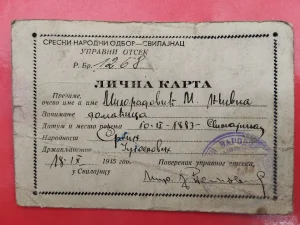 СРЕСКИ НАРОДНИ ОДБОР-СВИЛАЈНАЦ
УПРАВНИ ОТСЕК
Р. Бр. 1268
ЛИЧНА КАРТА
Презиме,
очево име и име Милорадовић М. Живка
Занимање домаћица
Датум и место рођења 10-II-1887-Свилајнац
Народност Српкиња
Држављанство Југословенско
18-IX 1945 год. Повереник управног отсека,
у Свилајнцу